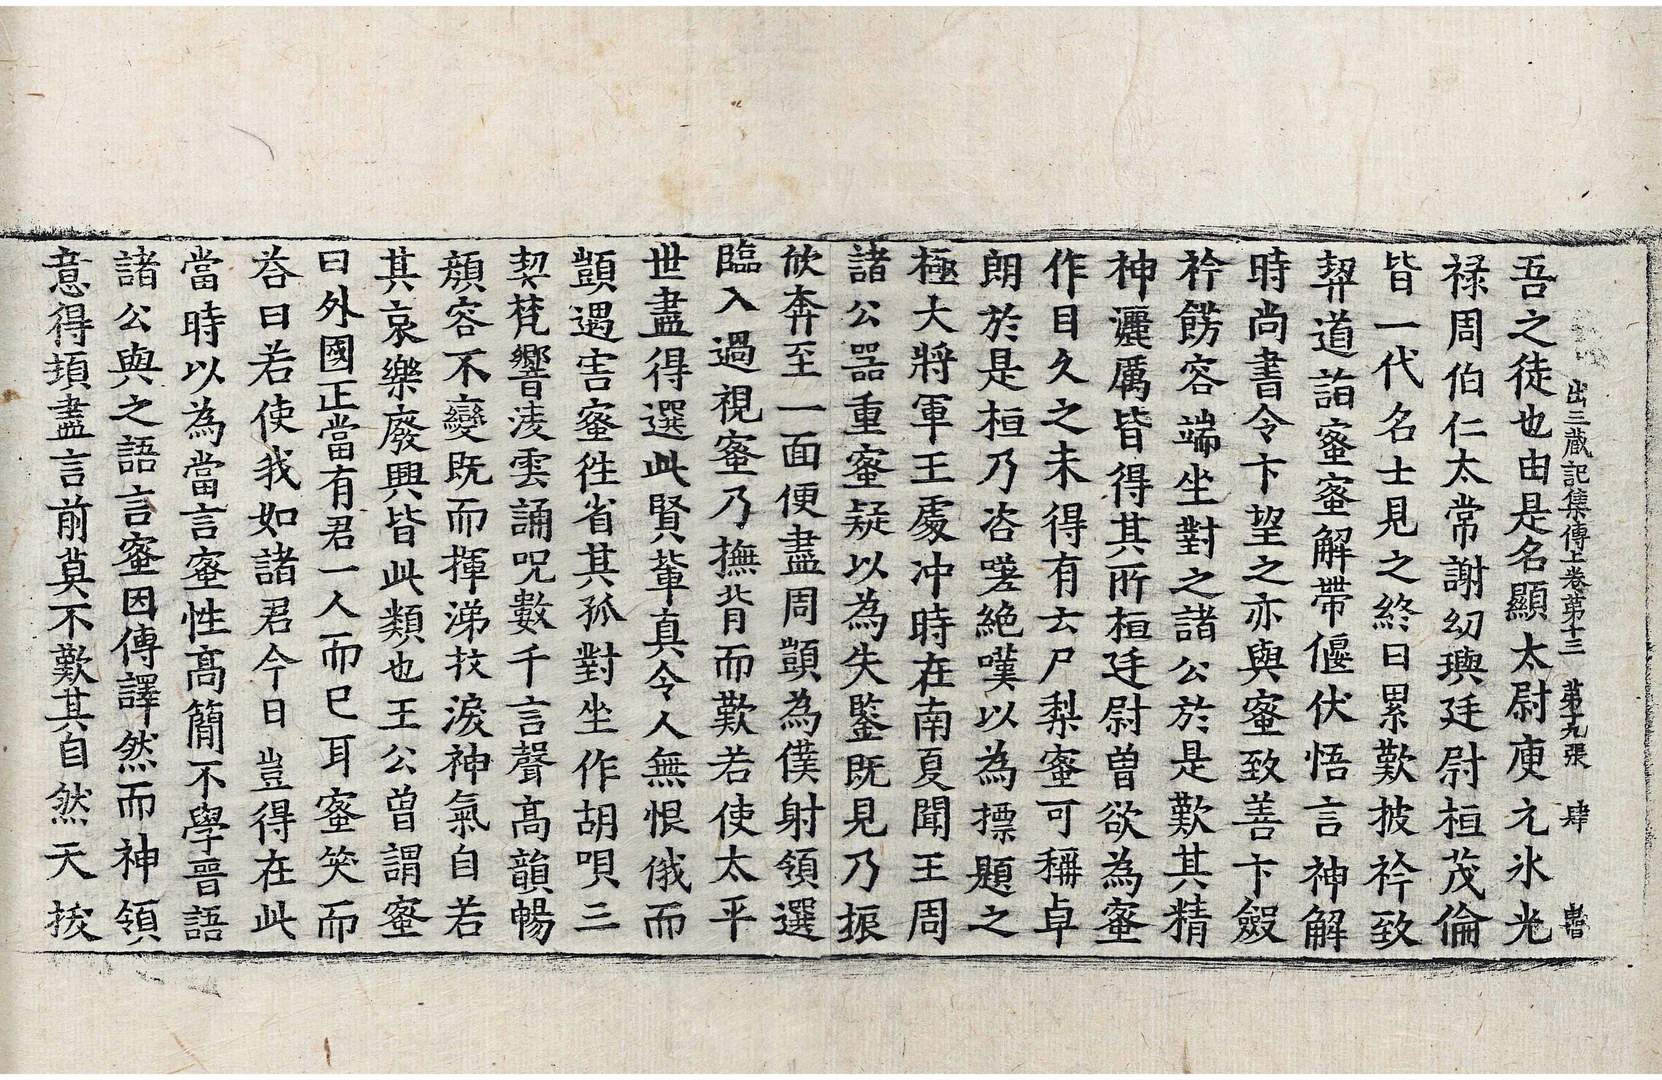 出三藏記集傳上卷第十三 第十九張 肆
吾之徒也由是名顯太尉庾元氷光
禄周伯仁太常謝幼輿廷尉桓茂倫
皆一代名士見之終日累歎披衿致
契導詣蜜蜜解帶偃伏悟言神解
時尚書令卞望之亦與蜜致善卞斂
衿飭容端坐對之諸公於是歎其精
神灑厲皆得其所桓廷尉曾欲為蜜
作目久之未得有云尸梨蜜可稱卓
朗於是桓乃咨嗟絶嘆以為摽題之
極大將軍王處冲時在南夏聞王周
諸公噐重蜜疑以為失鑒既見乃振
欣奔至一面便盡周顗為僕射領選
臨入過視蜜乃撫背而歎若使太平
世盡得選此賢軰真令人無恨俄而
顗遇害蜜徃省其孤對坐作胡唄三
契梵響凌雲誦呪數千言聲高韻暢
顏容不變既而揮涕抆淚神氣自若
其哀樂廢興皆此類也王公曾謂蜜
曰外國正當有君一人而已耳蜜笑而
荅曰若使我如諸君今日豈得在此
當時以為當言蜜性高簡不學晉語
諸公與之語言蜜因傳譯然而神領
意得頓盡言前莫不歎其自然天拔